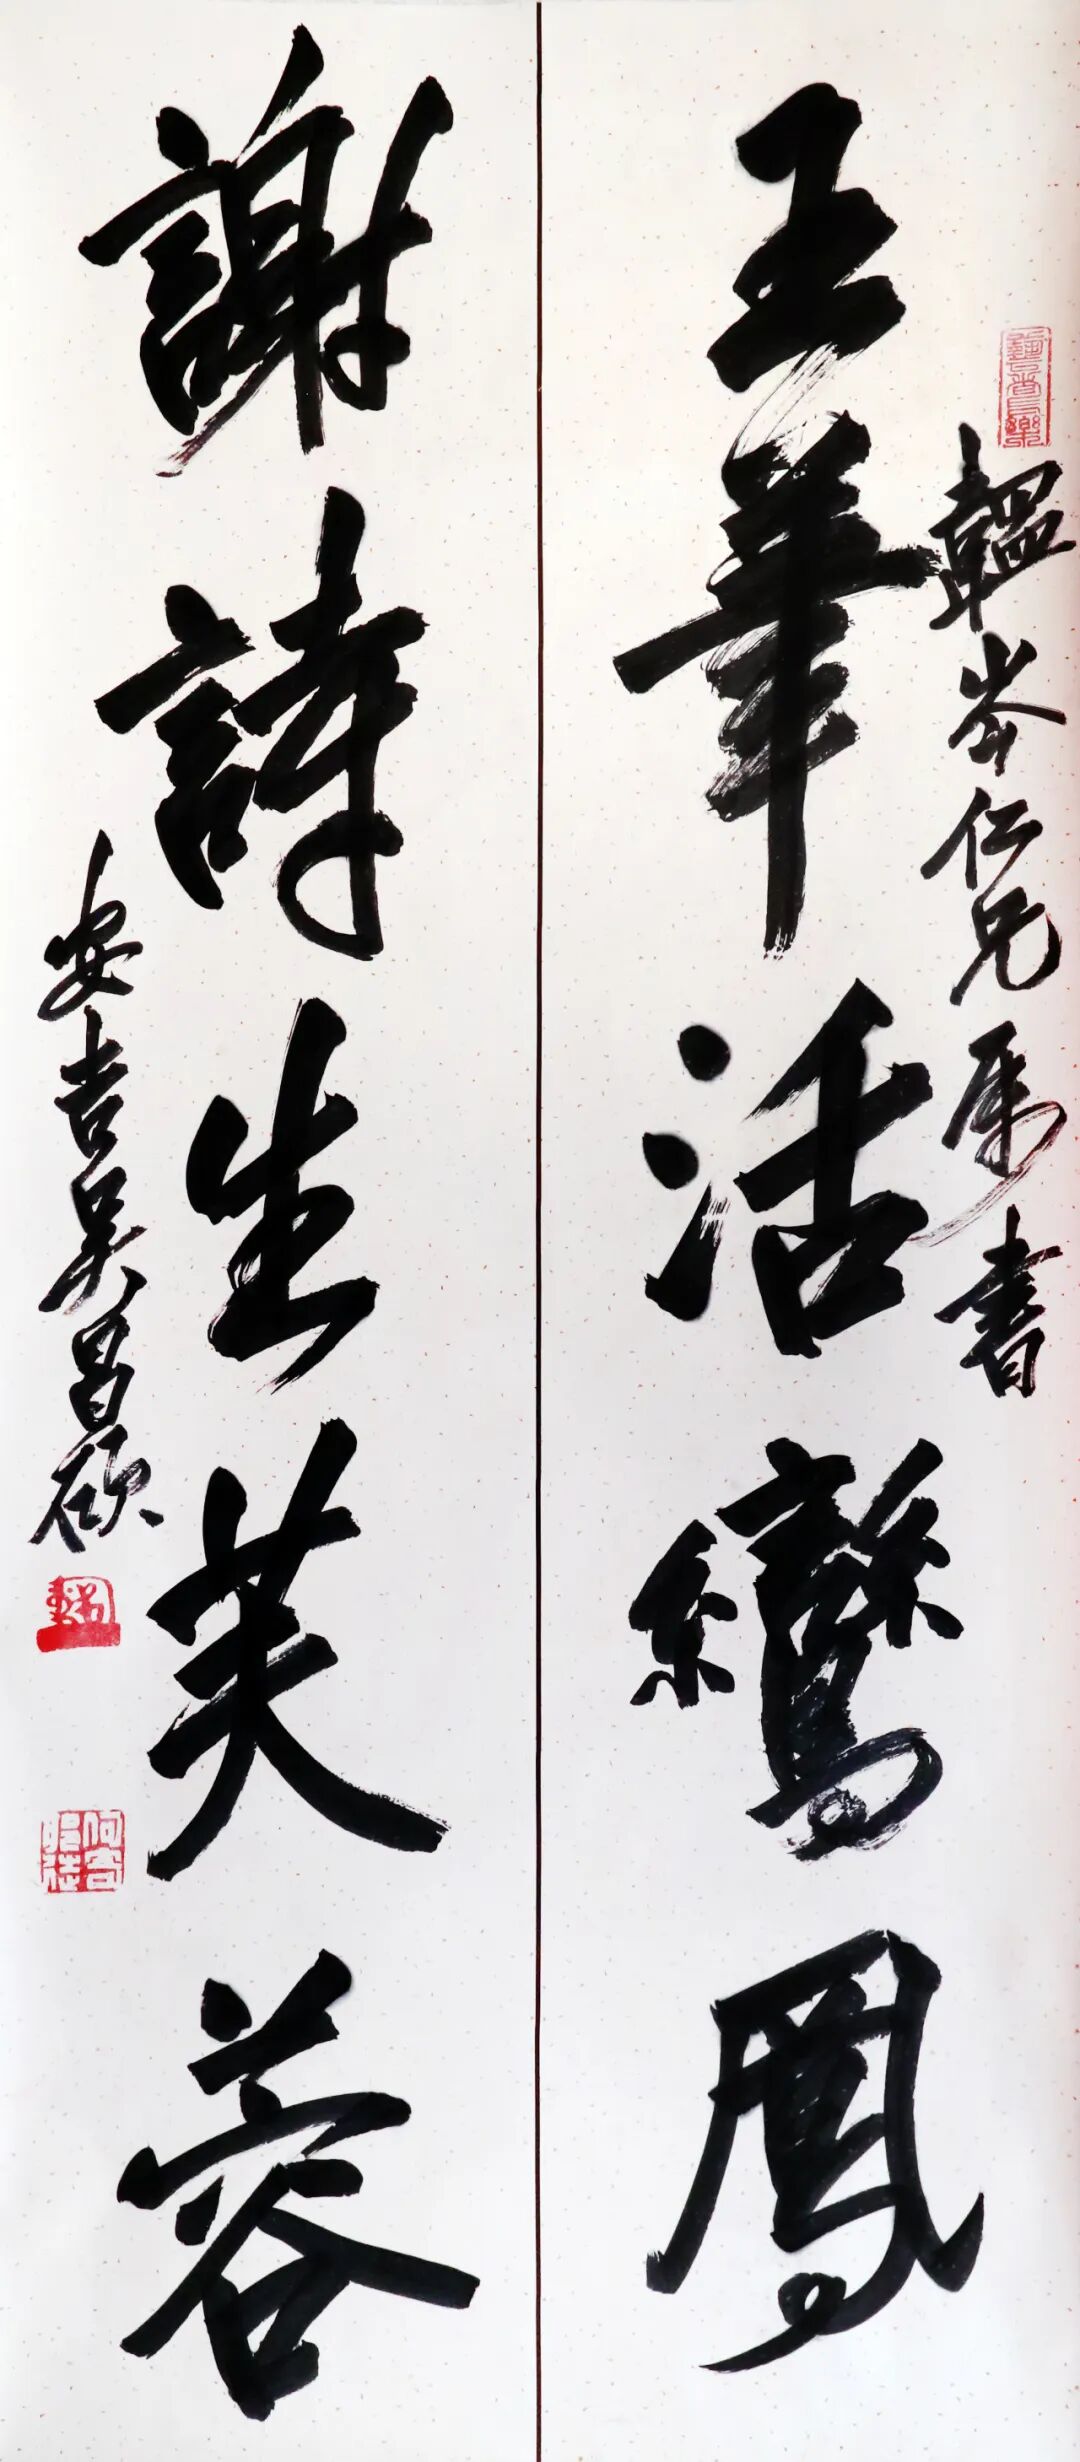 韞岑仁兄屬書
王筆活鸞鳳
謝詩生芙蓉
安吉吳昌碩